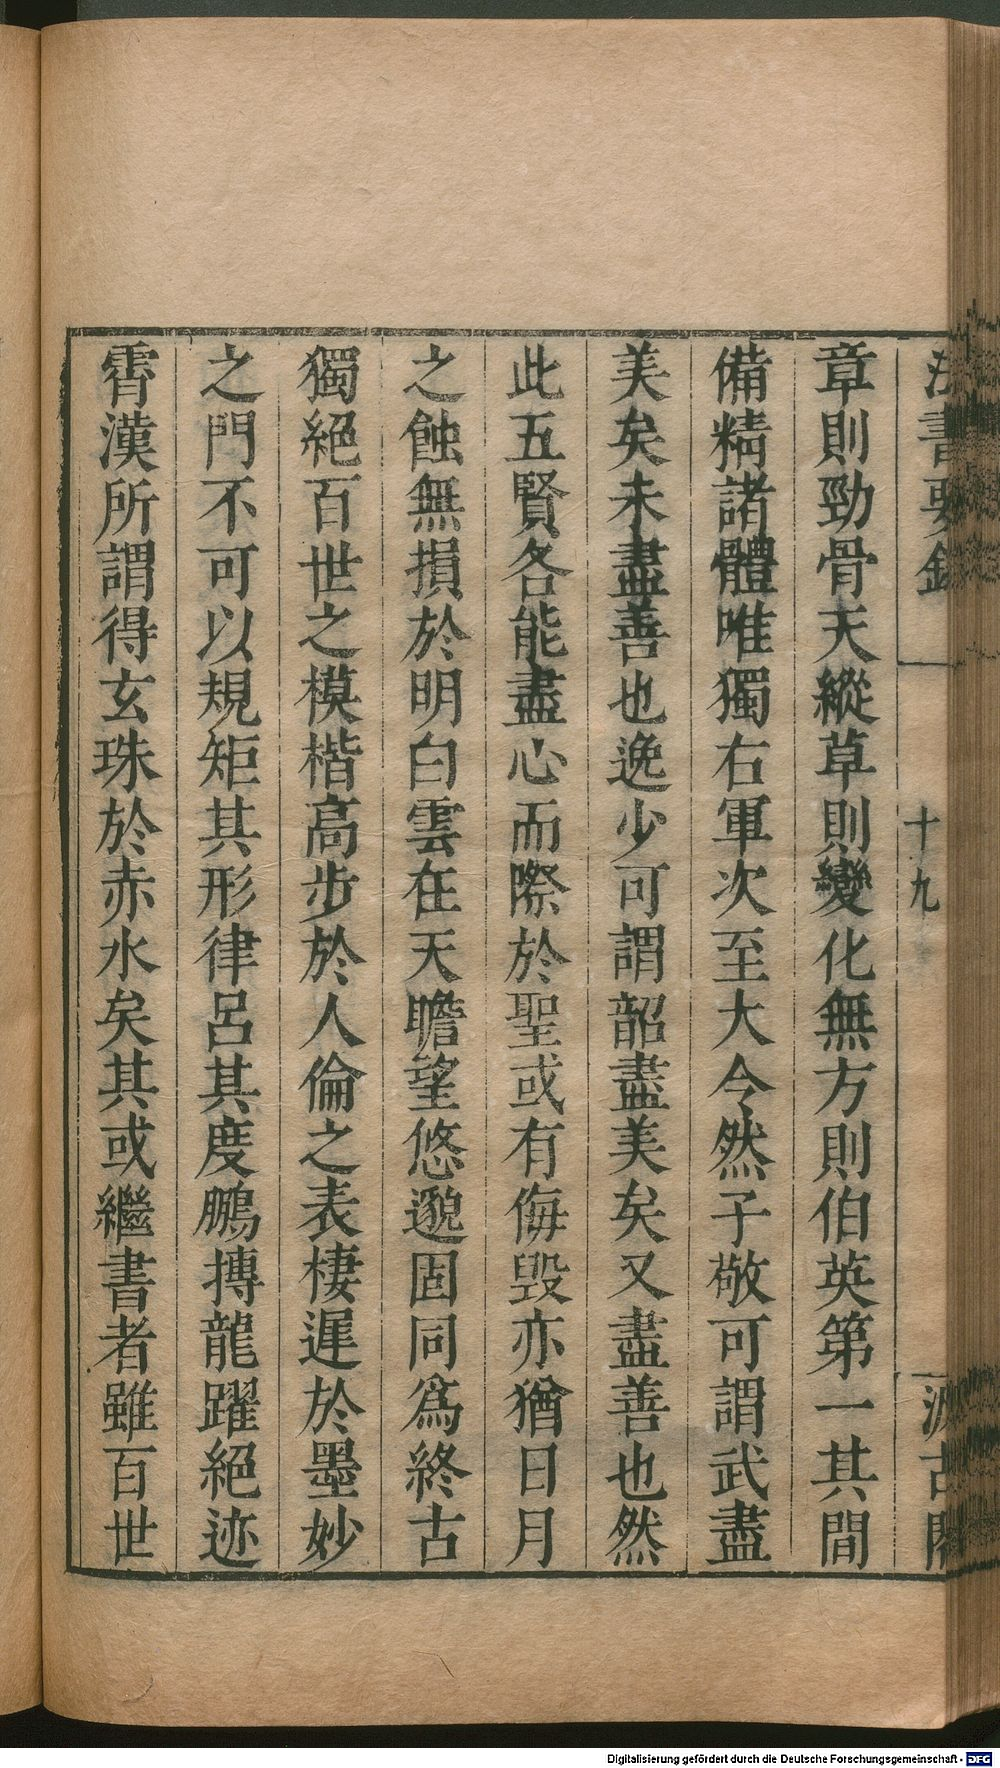 法書要錄
十九
汲古閣
章則勁骨天縱草則變化無方則伯英第一其間
備精諸體唯獨右軍次至大令然子敬可謂武盡
美矣未盡善也逸少可謂韶盡美矣又盡善也然
此五賢各能盡心而際於聖或有侮毀亦猶日月
之蝕無損於明白雲在天瞻望悠邈固同為終古
獨絕百世之模楷高步於人倫之表棲遲於墨妙
之門不可以規矩其形律呂其度鵬搏龍躍絕迹
霄漢所謂得玄珠於赤水矣其或繼書者雖百世
Digitalisierung gefördert durch die Deutsche Forschungsgemeinschaft - DFG